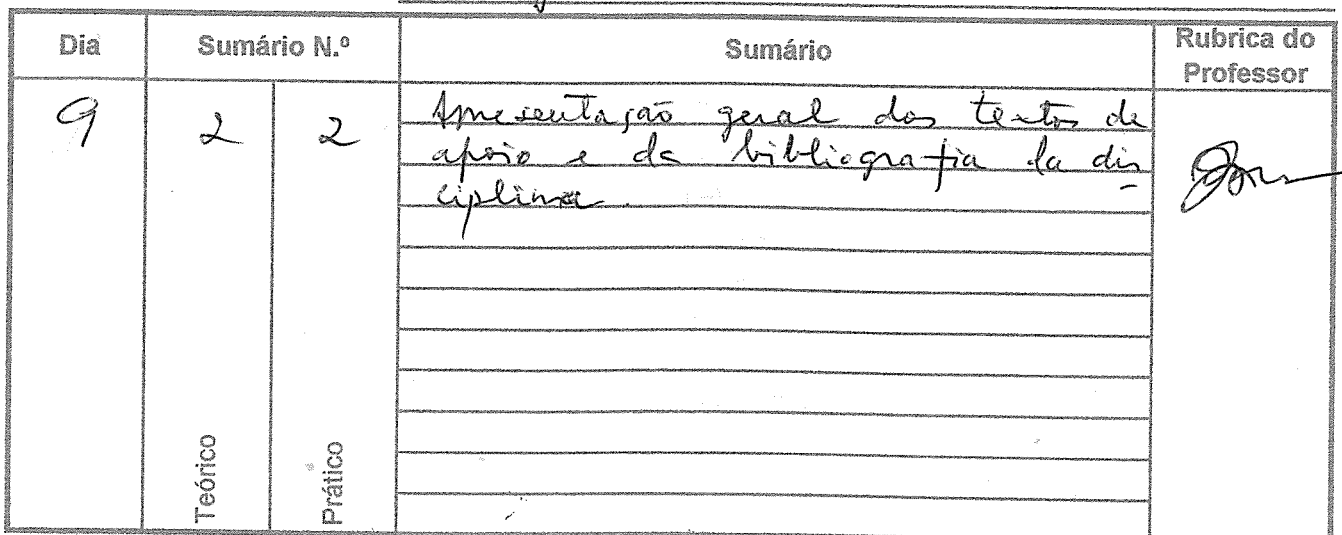 Dia Sumário N.º Sumário Rubrica do Professor
9 2 2 Apresentação geral dos textos de
apoio e da bibliografia da dis-
ciplina.
Teórico Prático